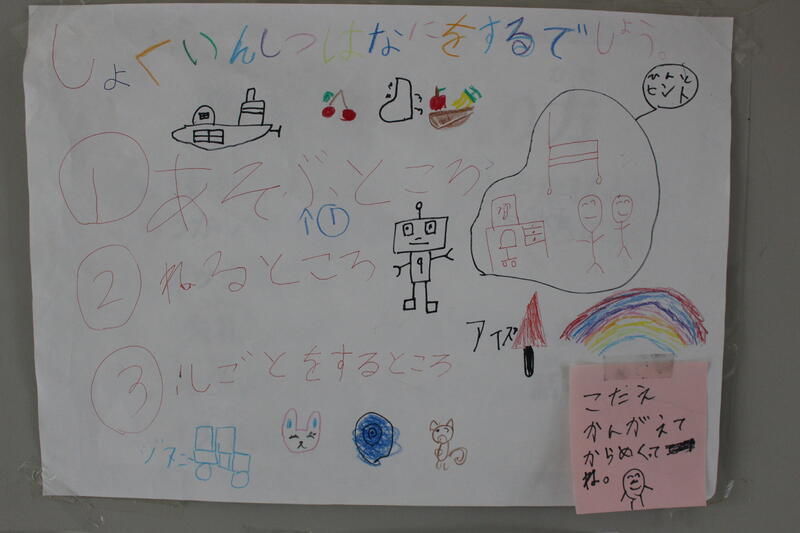 しょくいんしつはなにをするでしょう。
ひんと
ヒント
① あそぶところ
↑①
② ねるところ
9
アイズ
③ しごとをするところ
こたえ
かんがえて
からめくって
ね。